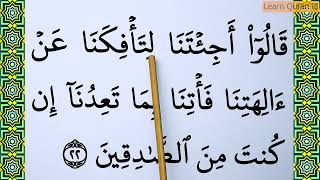 Learn Quran
قَالُوٓا۟ أَجِئۡتَنَا لِتَأۡفِكَنَا عَنۡ
ءَالِهَتِنَا فَأۡتِنَا بِمَا تَعِدُنَآ إِن
كُنتَ مِنَ ٱلصَّٰدِقِينَ ٢٢